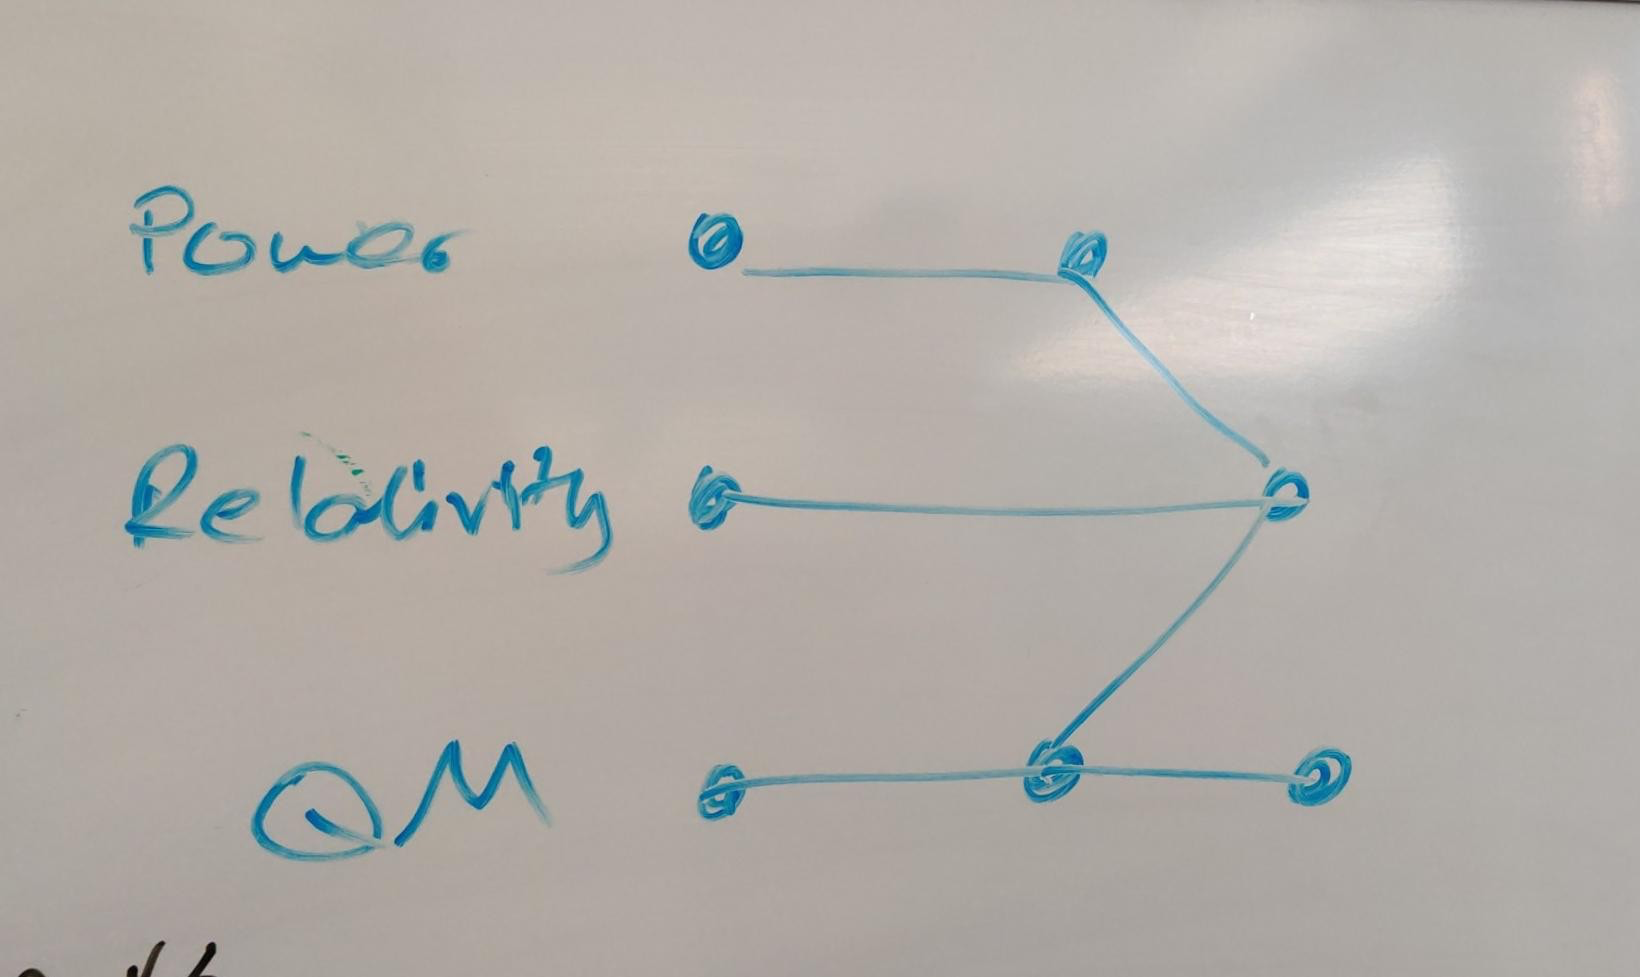 Power
Relativity
QM